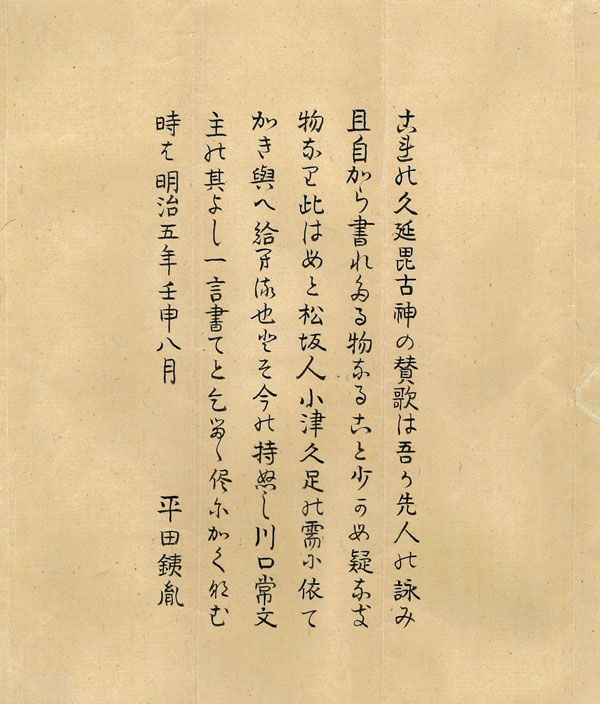 これの久延毘古神の賛歌は吾か先人の詠み
且自から書れたる物なること少かめ疑なき
物なり此はもと松坂人小津久足の需に依て
かき與へ給る也とそ今の持ぬし川口常文
主の其よし一言書てと乞るゝ侭にかくなむ
時は明治五年壬申八月
平田銕胤